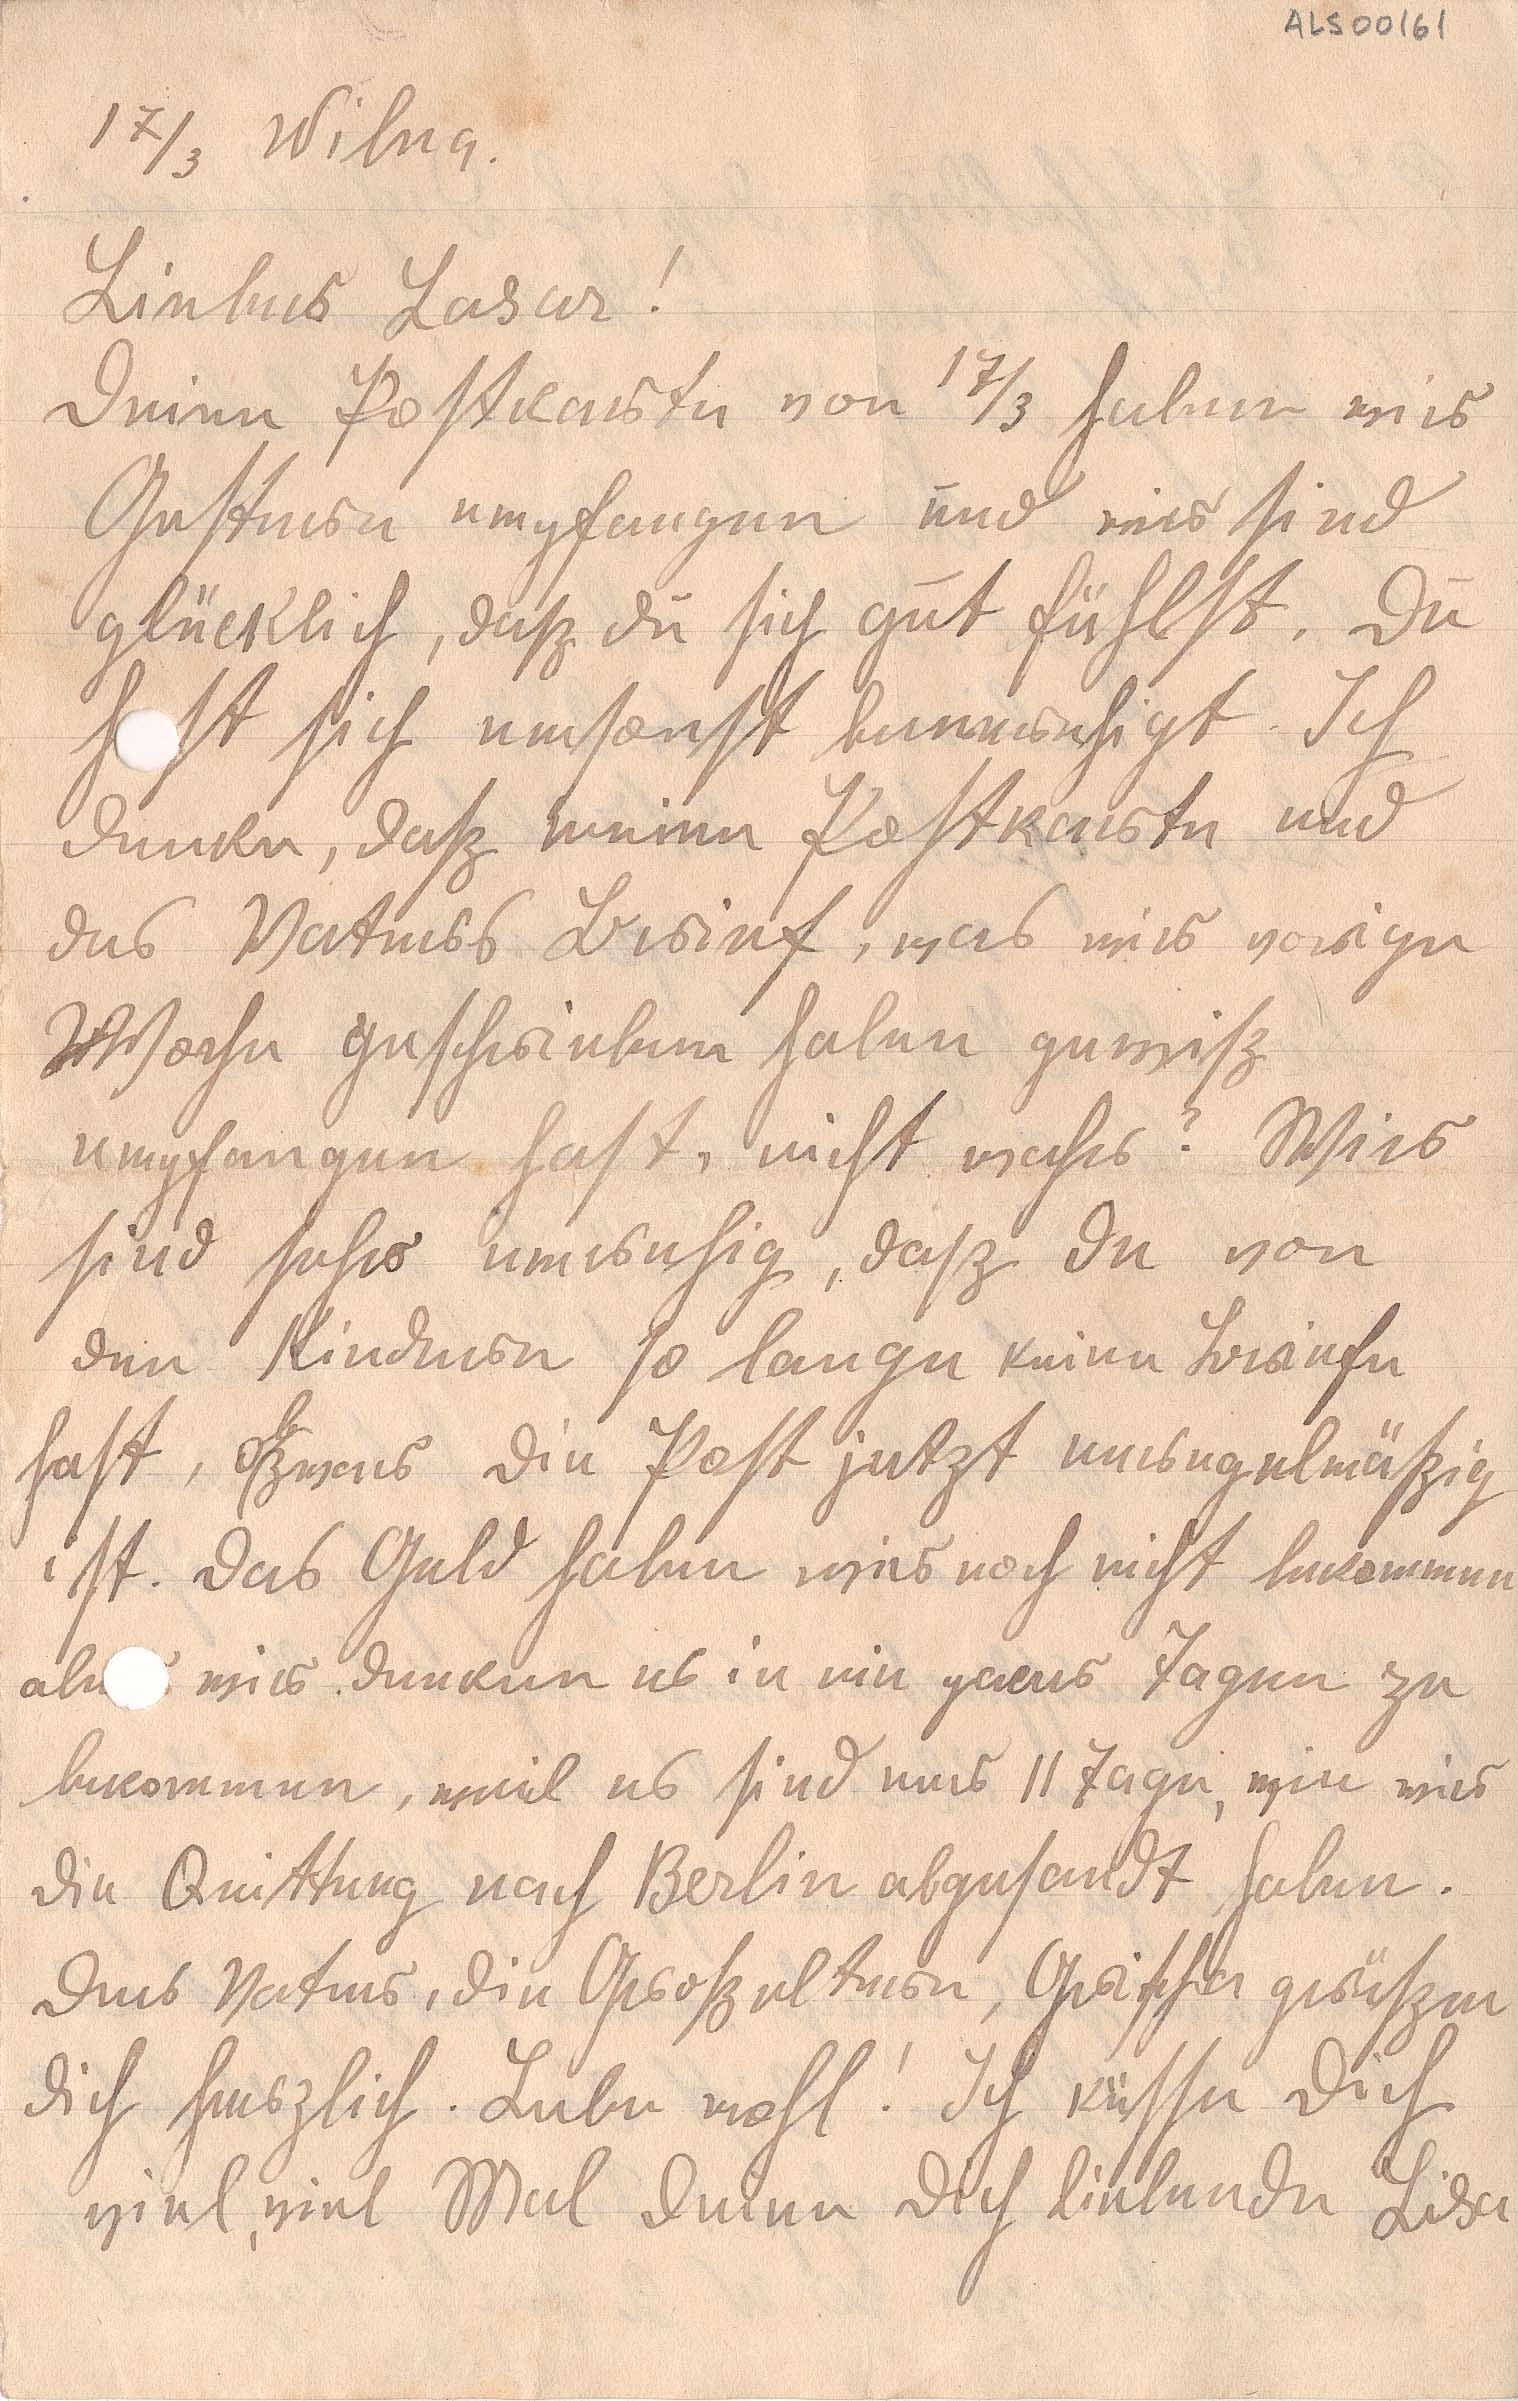 ALS00161
17/3 Wilna.
Lieber Lasar!
Deine Postkarte von 17/3 haben wir
Gestern empfangen und wir sind
glücklich, daß du sich gut fühlst. Du
hast sich umsonst beunruhigt. Ich
denke, daß meine Postkarte und
des Vaters Brief, was wir vorige
Woche geschrieben haben gewiß
empfangen hast, nicht wahr? Wir
sind sehr unruhig, daß du von
den Kindern so lange keine Briefe
hast, obzwar die Post jetzt unregelmäßig
ist. Das Geld haben wir noch nicht bekommen
aber wir denken es in ein paar Tagen zu
bekommen, weil es sind nur 11 Tage, wie wir
die Quittung nach Berlin abgesandt haben.
Der Vater, die Großeltern, Grischa grüßen
dich herzlich. Lebe wohl! Ich küsse Dich
viel, viel Mal Deine Dich liebende Lisa